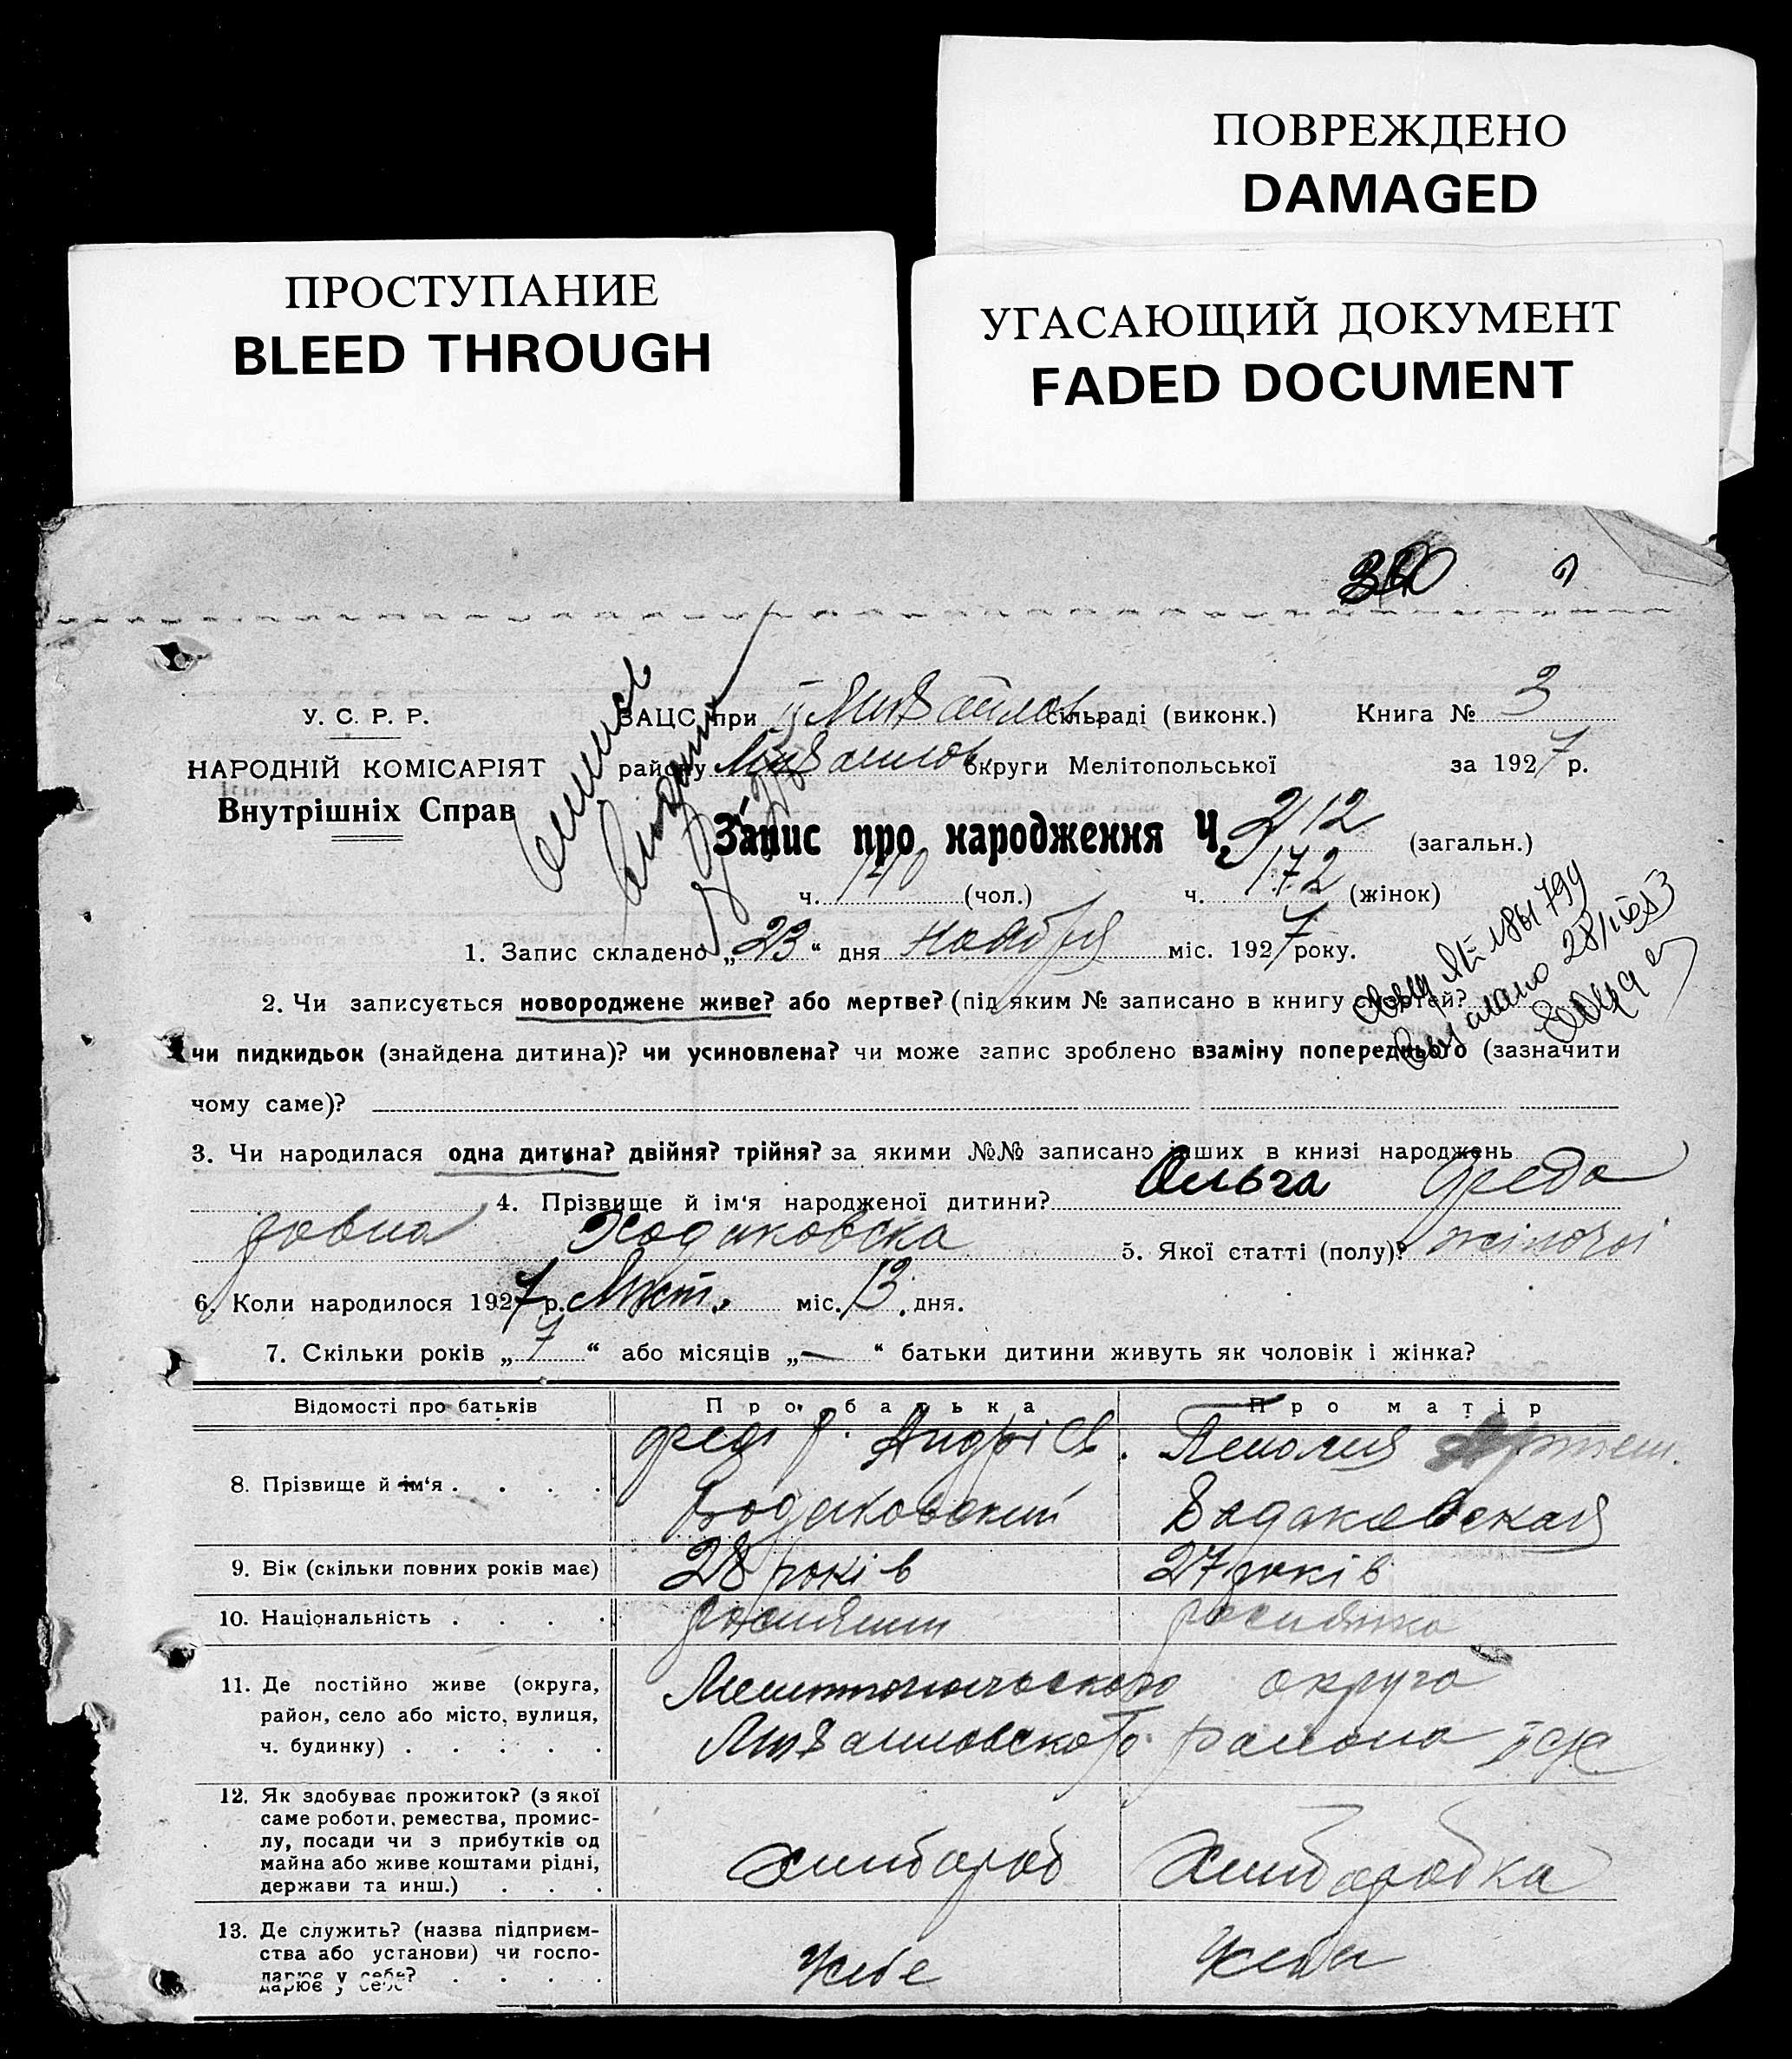 ПОВРЕЖДЕНО
DAMAGED
ПРОСТУПАНИЕ
BLEED THROUGH
УГАСАЮЩИЙ ДОКУМЕНТ
FADED DOCUMENT
У. С. Р. Р.
НАРОДНІЙ КОМІСАРІЯТ
Внутрішніх Справ
ЗАЦС при II Михайлов. сільраді (виконк.) Книга № 3
району Михайлов. округи Мелітопольської за 1927 р.
Запис про народження Ч. 212 (загальн.)
ч. 140 (чол.) ч. 172 (жінок)
1. Запис складено „23“ дня ноября міс. 1927 року.
2. Чи записується новороджене живе? або мертве? (під яким № записано в книгу смертей?
чи пидкидьок (знайдена дитина)? чи усиновлена? чи може запис зроблено взаміну попереднього (зазначити
чому саме)?
3. Чи народилася одна дитина? двійня? трійня? за якими №№ записано інших в книзі народжень
4. Прізвище й ім‘я народженої дитини? Ольга Федо
ровна Ходаковска 5. Якої статті (полу)? жіночої
6. Коли народилося 1927 р. Лист. міс. 13 дня.
7. Скільки років „7“ або місяців „—“ батьки дитини живуть як чоловік і жінка?
Відомості про батьків Про батька Про матір
8. Прізвище й ім‘я . . . . Федір Андрієв. Артем.
Ходаковский Ходаковская
9. Вік (скільки повних років має) 28 років 27 років
10. Національність . . . . росиянин росиянка
11. Де постійно живе (округа,
район, село або місто, вулиця,
ч. будинку) . . . . .
Мелитопольского округа
Михайловского района
12. Як здобуває прожиток? (з якої
саме роботи, ремества, промис-
лу, посади чи з прибутків од
майна або живе коштами рідні,
держави та инш.) . . .
хлибороб хлиборобка
13. Де служить? (назва підприєм-
ства або установи) чи госпо-
дарює у себе? . . . .
У себе У себя